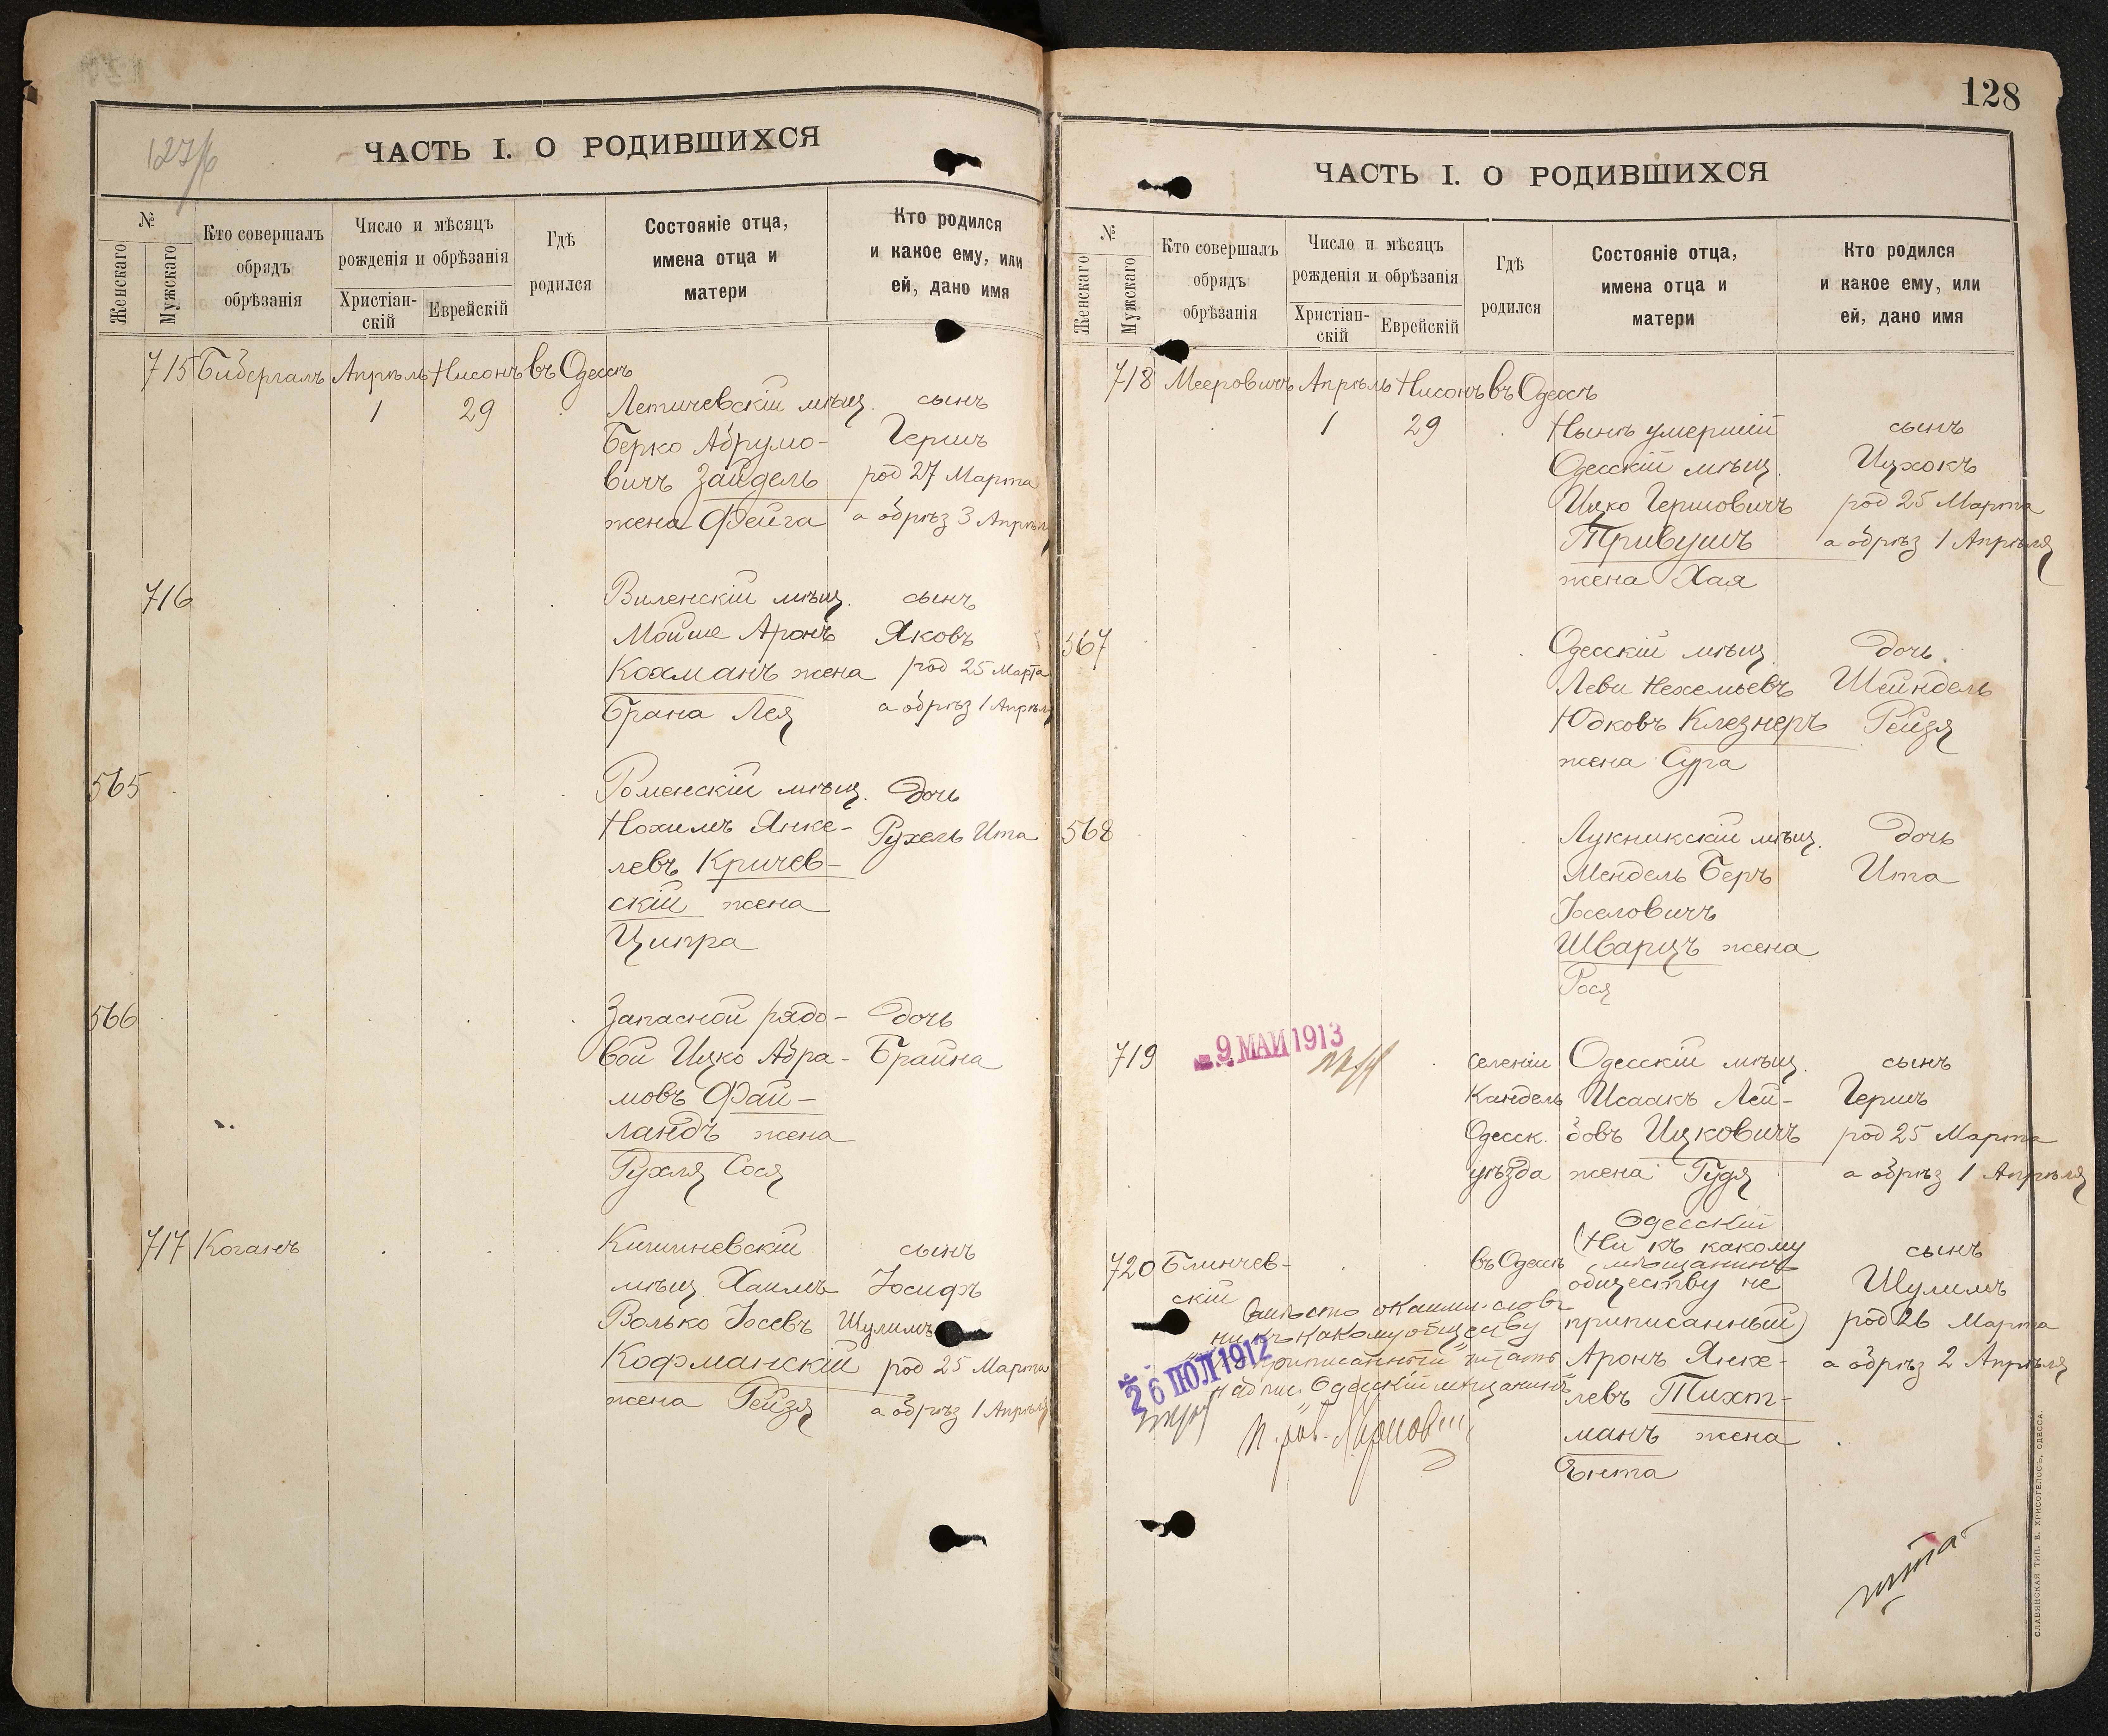 127/б
ЧАСТЬ I. О РОДИВШИХСЯ
№
Женскаго
Мужскаго
Кто совершалъ
обрядъ
обрѣзанія
Число и мѣсяцъ
рожденія и обрѣзанія
Христіан-
скій
Еврейскій
Гдѣ
родился
Состояніе отца,
имена отца и
матери
Кто родился
и какое ему, или
ей, дано имя
715 Бидергалъ Апрѣль Нисонъ въ Одессѣ
1 29 Летичевскій мѣщ. сынъ
Берко Абрумо- Гершъ
вичъ Зайдель род 27 Марта
жена Фейга а обрѣз 3 Апрѣля
716 Виленскій мѣщ. сынъ
Мойше Аронъ Яковъ
Кохманъ жена род 25 Марта
Брана Лея а обрѣз 1 Апрѣля
565 Роменскій мѣщ. дочь
Нохимъ Янке- Рухель Ита
левъ Кричев-
скій жена
Ципра
566 Запасной рядо- дочь
вой Ицко Абра- Брайна
мовъ Фай-
ландъ жена
Рухля Сося
717 Коганъ Кишиневскій сынъ
мѣщ. Хаимъ Іосифъ
Волько Іосевъ Шулимъ
Кофманскій род 25 Марта
жена Рейзя а обрѣз 1 Апрѣля
128
ЧАСТЬ I. О РОДИВШИХСЯ
№
Женскаго
Мужскаго
Кто совершалъ
обрядъ
обрѣзанія
Число и мѣсяцъ
рожденія и обрѣзанія
Христіан-
скій
Еврейскій
Гдѣ
родился
Состояніе отца,
имена отца и
матери
Кто родился
и какое ему, или
ей, дано имя
718 Мееровичъ Апрѣль Нисонъ въ Одессѣ
1 29 Нынѣ умершій сынъ
Одесскій мѣщ. Ицхокъ
Ицко Гершовичъ род 25 Марта
Тривушъ а обрѣз 1 Апрѣля
жена Хая
567 Одесскій мѣщ. дочь
Леви Нехемьевъ Шейндель
Юдковъ Клезнеръ Рейзя
жена Сура
568 Лукникскій мѣщ. дочь
Мендель Беръ Ита
Іоселовичъ
Шварцъ жена
Рося
719 9 МАЙ 1913 селеніи Одесскій мѣщ. сынъ
Кандель Исаакъ Лей- Гершъ
Одесск. бовъ Ицковичъ род 25 Марта
уѣзда жена Гудя а обрѣз 1 Апрѣля
Одесскій
мѣщанинъ
720 Блинчев- въ Одессѣ (Ни къ какому сынъ
скій обществу не Шулимъ
приписанный) род 26 Марта
Аронъ Янке- а обрѣз 2 Апрѣля
левъ Тихт-
манъ жена
Ента
ни къ какому обществу
приписанный
надпис. Одесскій мѣщанинъ
26 ІЮЛ 1912
СЛАВЯНСКАЯ ТИП. Е. ХРИСОГЕЛОСЪ, ОДЕССА.